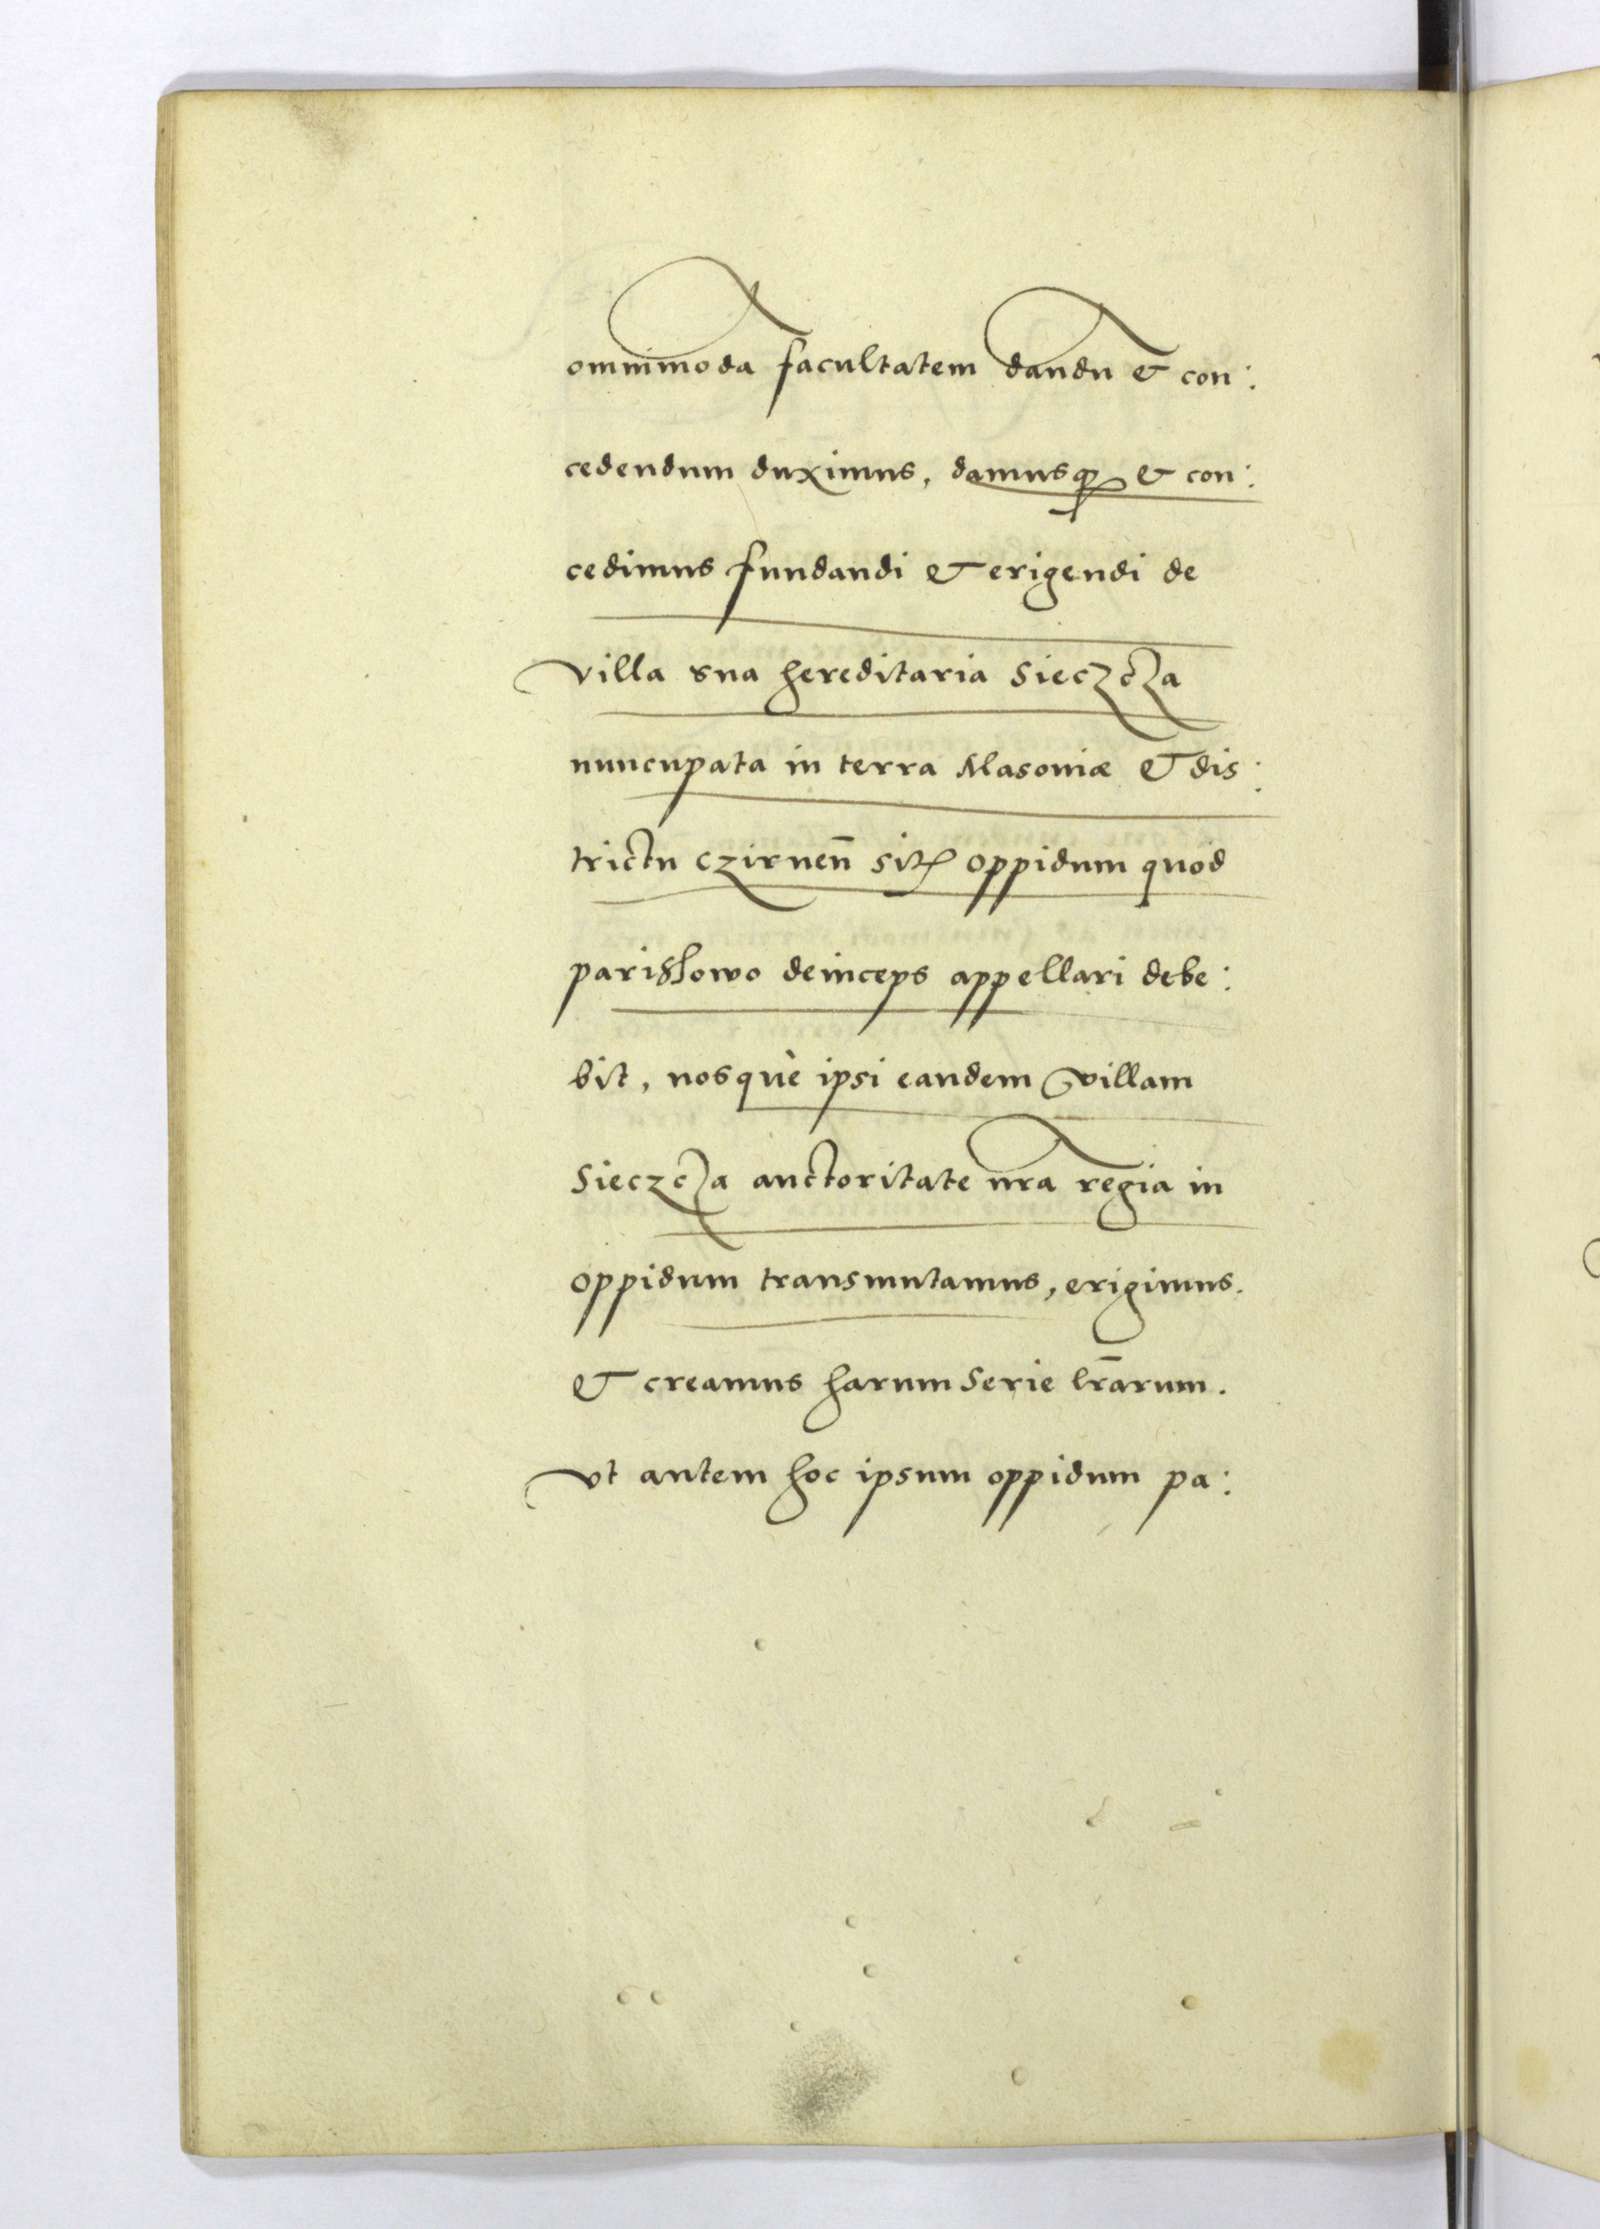 omnimodā facultatem dandū & con:
cedendum duximus, damusqꝫ & con:
cedimus fundandi & erigendi de
villa sua hereditaria Sieczcza
nuncupata in terra Masoviæ & dis:
trictu Czirnen̄ sit̄ oppidum quod
parissowo deinceps appellari debe:
bit, nosquè ipsi eandem villam
Sieczcza auctoritate nr̄a regia in
oppidum transmutamus, erigimus.
& creamus harum serie lr̄arum.
Vt autem hoc ipsum oppidum pa: